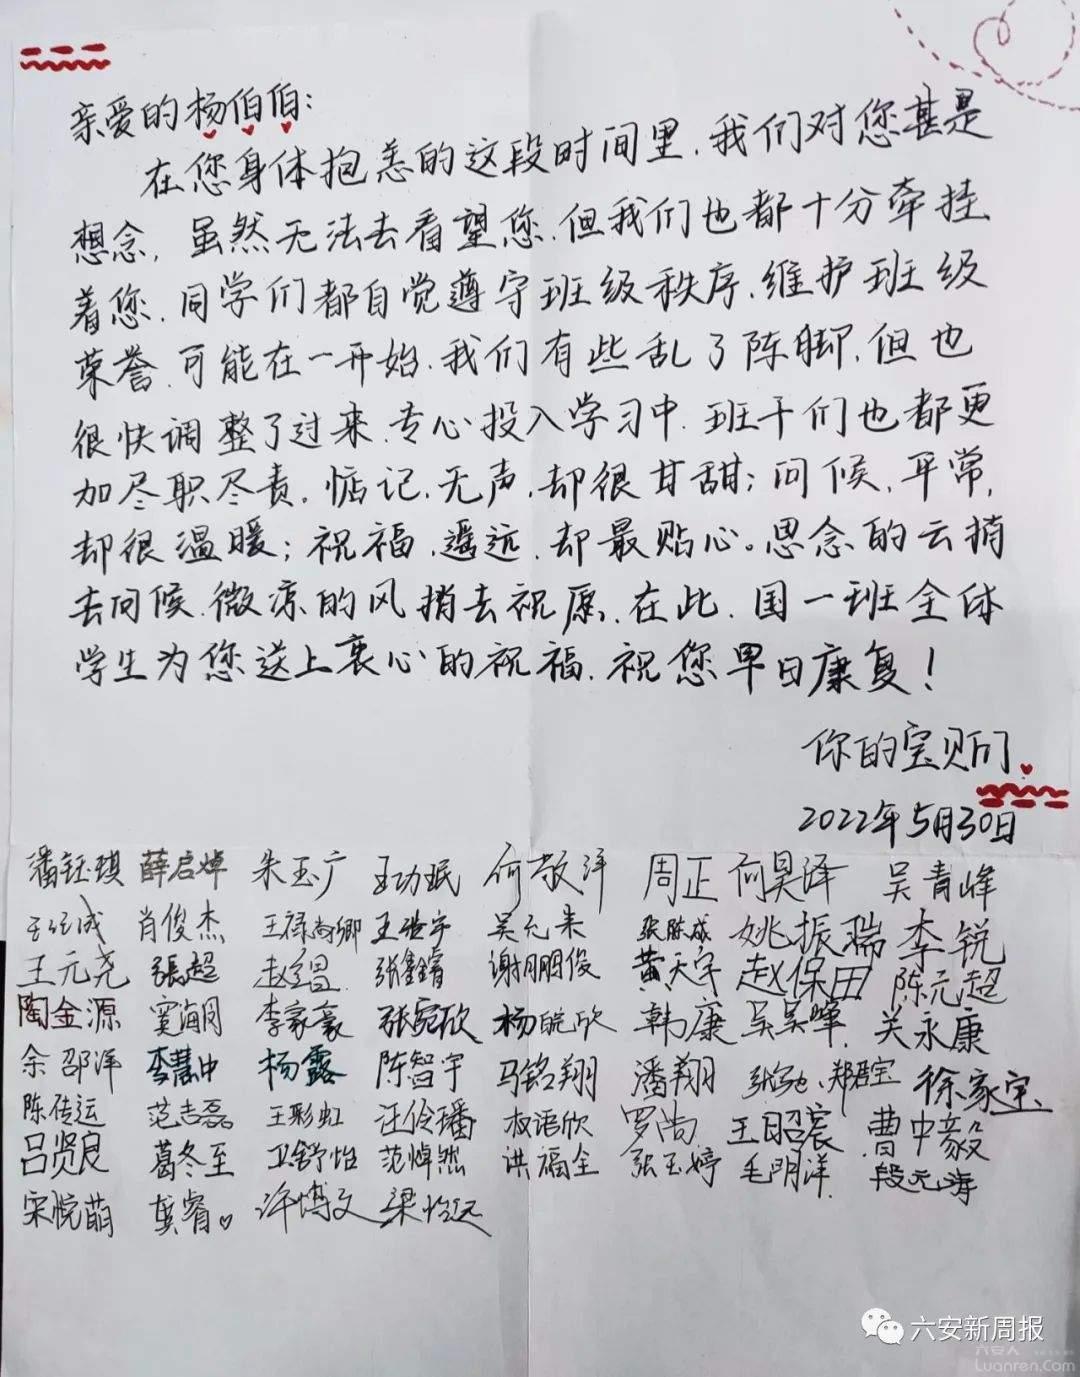 亲爱的杨伯伯:
在您身体抱恙的这段时间里,我们对您甚是
想念,虽然无法去看望您,但我们也都十分牵挂
着您,同学们都自觉遵守班级秩序,维护班级
荣誉,可能在一开始,我们有些乱了陈脚,但也
很快调整了过来,专心投入学习中,班干们也都更
加尽职尽责。惦记,无声,却很甘甜;问候,平常,
却很温暖;祝福,遥远,却最贴心。思念的云捎
去问候,微凉的风捎去祝愿,在此,国一班全体
学生为您送上衷心的祝福,祝您早日康复!
你的宝贝们
2022年5月30日
潘钰琪 薛启焯 朱玉广 王功珉 何敬洋 周正 何昊泽 吴青峰
肖俊杰 王禄尚卿 吴元来 张陈成 姚振瑞 李锐
王元尧 張超 赵锟 张鑫鑄 谢鹏俊 黄天宇 赵保田 陈元超
陶金源 窦海同 李家豪 张宛欣 杨皖欣 韩康 吴昊晖 关永康
余邵洋 李慧中 杨露 陈智宇 马铭翔 潘翔 张弛 郑君宝 徐家宝
陈传运 范志磊 王彩虹 汪伶璠 权语欣 罗尚 王昭宸 曹中毅
吕贤良 葛冬至 卫舒怡 范焯然 洪福全 张玉婷 毛明洋 段元海
宋悦萌 龚睿 许博文 梁怡
六安新周报
六安人
Luanren.Com